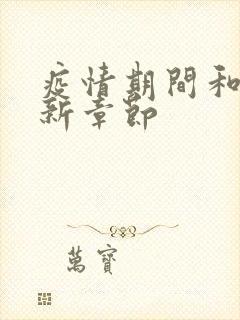 疫情期間和
新章節
萬寶